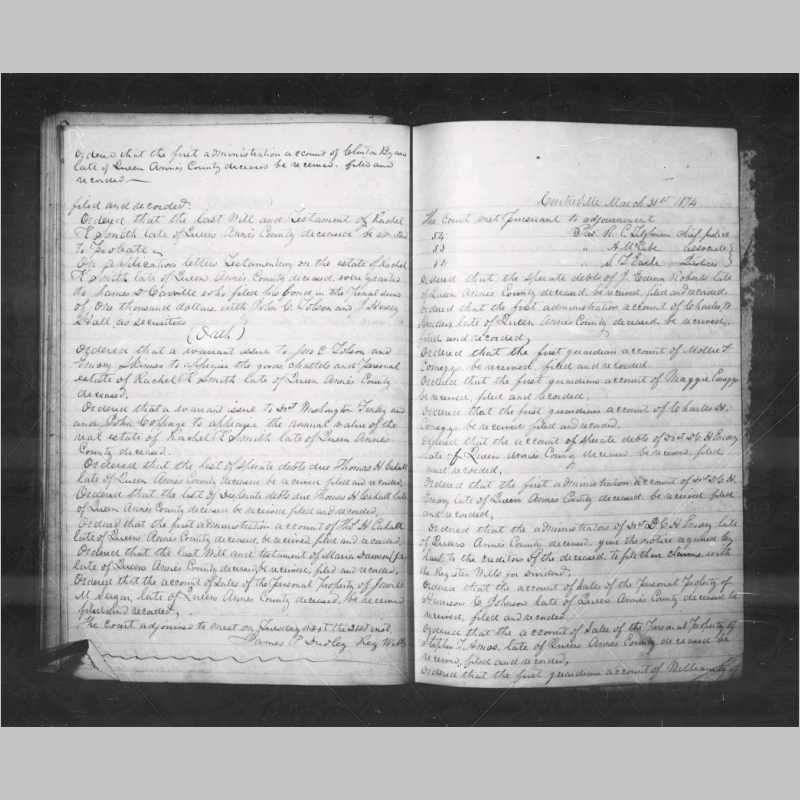 Ordered that the first administration account of Clinton
late of Queen Annes County deceased be received. filed and
recorded
filed and recorded.
Ordered that the last Will and Testament of Rachel
E Smith late of Queens Annes County deceased be admitted
to Probate
On application letters Testamentory on the estate of Rachel
E Smith late of Queen Annes County deceased were granted
to James who filed his bond in the Penal sum
of One thousand dollars, with John C. Tolson and
Hall as securities
(Oath)
Ordered that a warrant issue to Jno C Tolson and
Skinner to appraise the goods chattels and Personal
estate of Rachel E Smith late of Queen Annes County
deceased.
Ordered that a warrant issue to Washington and
and John to appraise the annual value of the
real estate of Rachel E Smith late of Queen Annes
County deceased.
Ordered that the list of Sperate debts due Thomas H
late of Queen Annes County deceased be received filed and recorded
Ordered that the list of Desperate debts due Thomas H late
of Queen Annes County deceased be received filed and recorded.
Ordered that the first administration account of Thos H
late of Queens Annes County deceased, be received filed and recorded.
Ordered that the last Will and testament of Maria
late of Queens Annes County deceased, be received, filed and recorded.
Ordered that the account of Sales of the Personal Property of
M late of Queen Annes County deceased, be received
filed and recorded,
The Court adjourns to meet on Tuesday next the 31st inst.
James P Dudley Reg Wills
Centreville March 31st 1874
The Court met pursuant to adjournment
Pres. R. C. Tilghman chief justice
" associate
" S. T. Earle Justices
Ordered that the Sperate debts of J. Edwin Roberts late
of Queen Annes County deceased be received, filed and recorded.
Ordered that the first administration account of Charles W
late of Queen Annes County deceased be received,
filed and recorded,
Ordered that the first guardian account of Mollie
be received, filed and recorded.
Ordered that the first guardians account of Maggie
be received, filed and recorded.
Ordered that the first guardians account of Charles H.
be received filed and recorded.
Ordered that the account of Sperate debts of D. C. H Emory
late of Queen Annes County deceased be received, filed
and recorded,
Ordered that the first Administration Account of D C H
Emory late of Queen Annes County deceased be received filed
and recorded,
Ordered that the administrators of D. C H Emory late
of Queens Annes County deceased, give the notice required by
law to the creditors of the deceased to file their claims with
the Register Wills for Dividend,
Ordered that the account of Sales of the Personal Property of
Harrison C Johnson late of Queen Annes County deceased be
received, filed and recorded
Ordered that the account of Sales of the Personal Property of
Stephen Amos, late of Queens Annes County deceased be
received, filed and recorded,
Ordered that the first guardians account of William